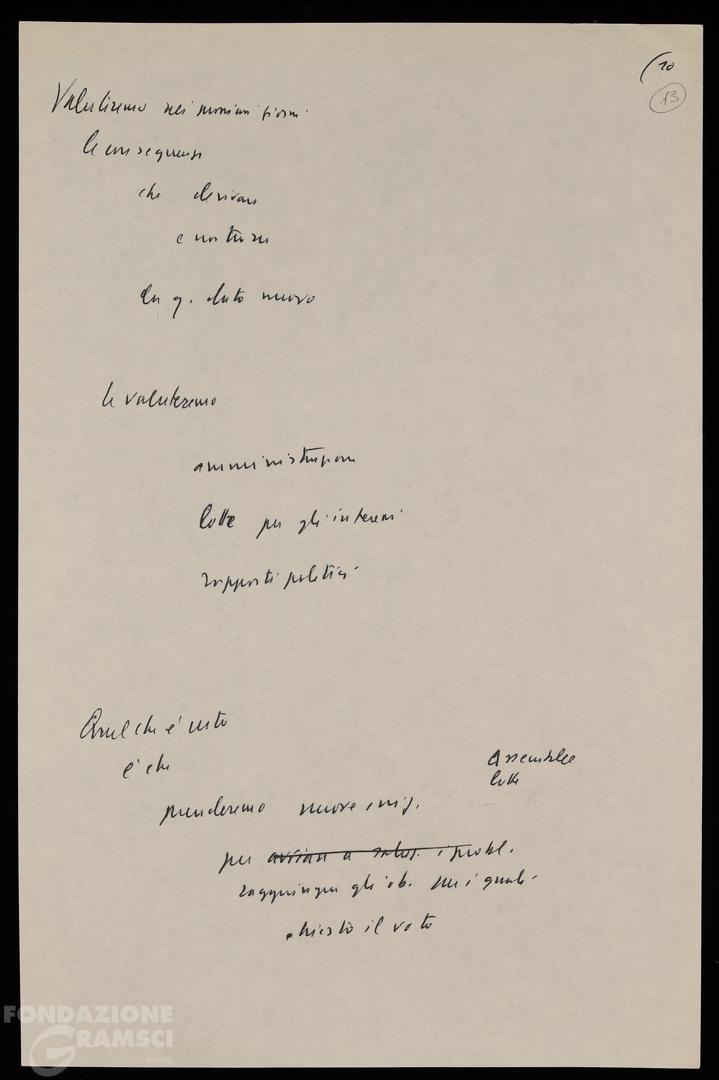 (10
13
Valuteremo nei prossimi giorni
le conseguenze
che derivano
e
da q. dato nuovo
le valuteremo
amministrazioni
lotte per gli interessi
rapporti politici
Quel che è certo
è che
Assemblee
lotte
prenderemo nuove iniz.
per avviare a soluz. i probl.
raggiungere gli ob. per i quali
chiesto il voto
FONDAZIONE
GRAMSCI
onlus